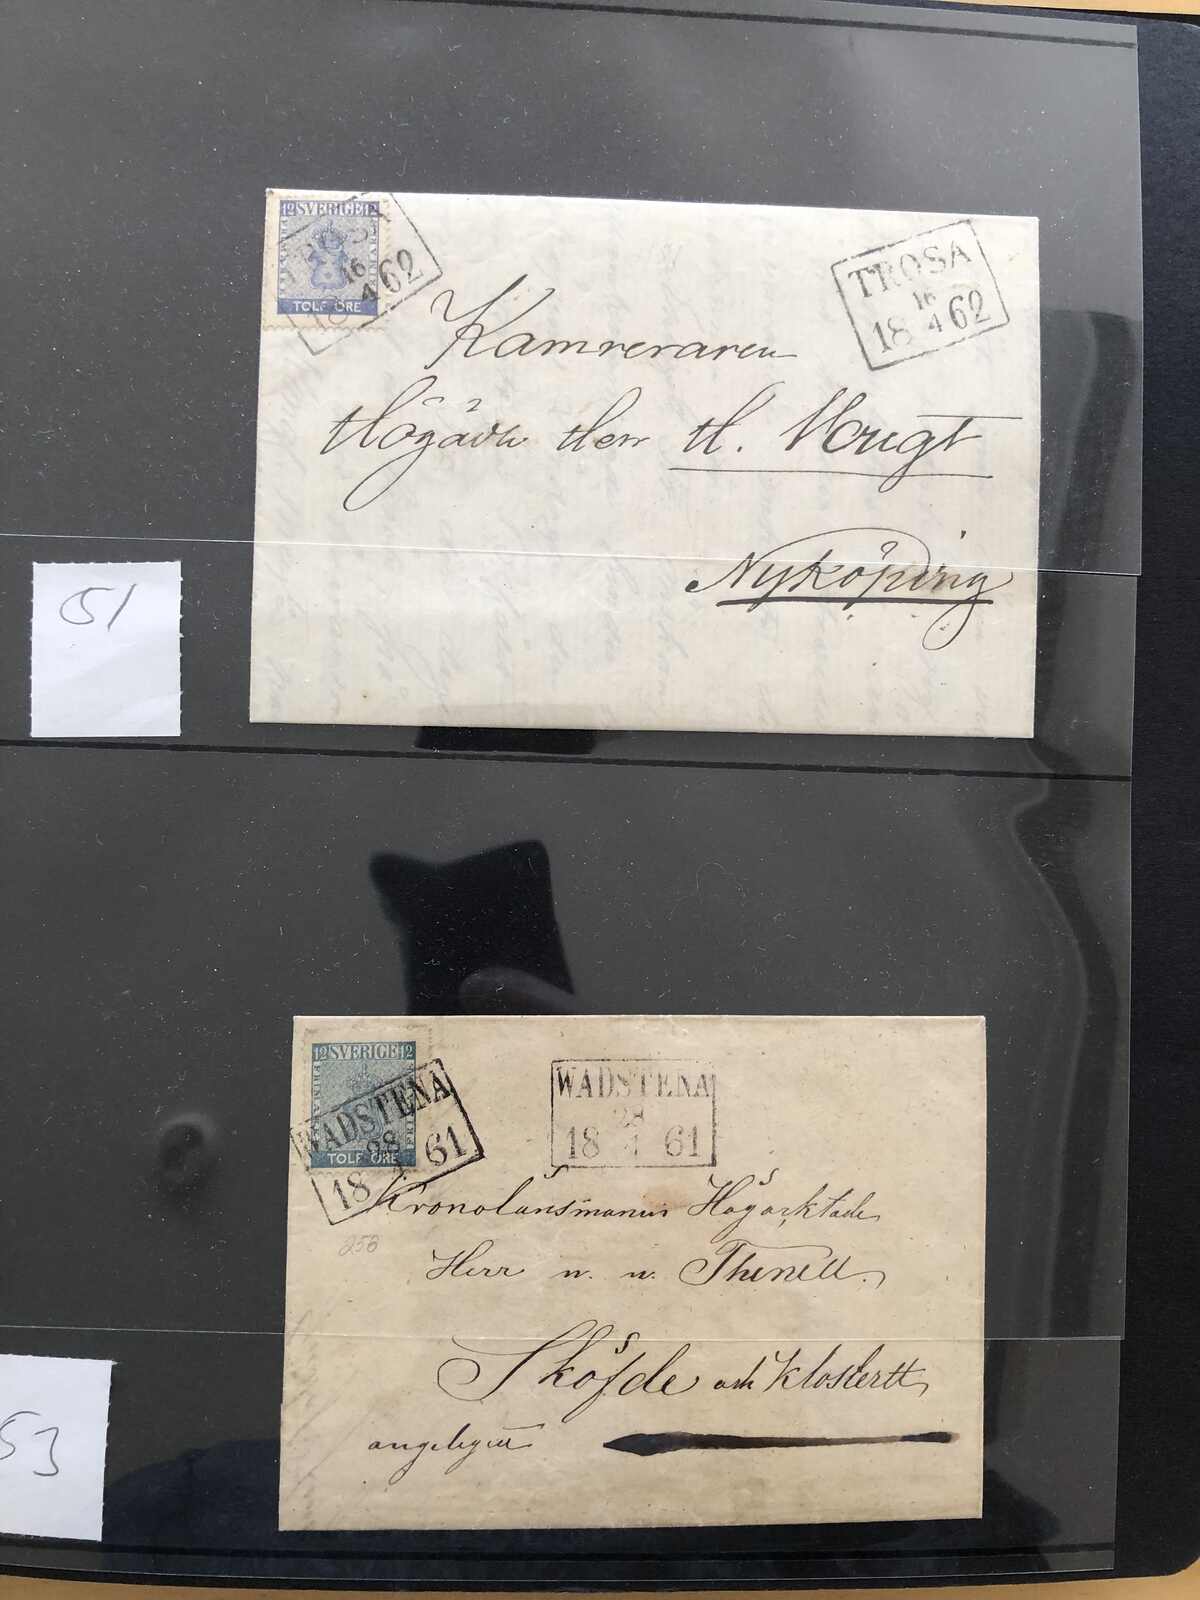 12 SVERIGE 12
TOLF ÖRE
16
18 4 62
TROSA
16
18 4 62
Kamreraren
Högädle Herr H.
Nyköping
51
12 SVERIGE 12
FRIMÄRKE
TOLF ÖRE
WADSTENA
28
18 4 61
WADSTENA
28
18 4 61
Kronolänsmannen Högaktade
Herr m. m. Thinell.
Sköfde och Klostertt
angeläget
258
53